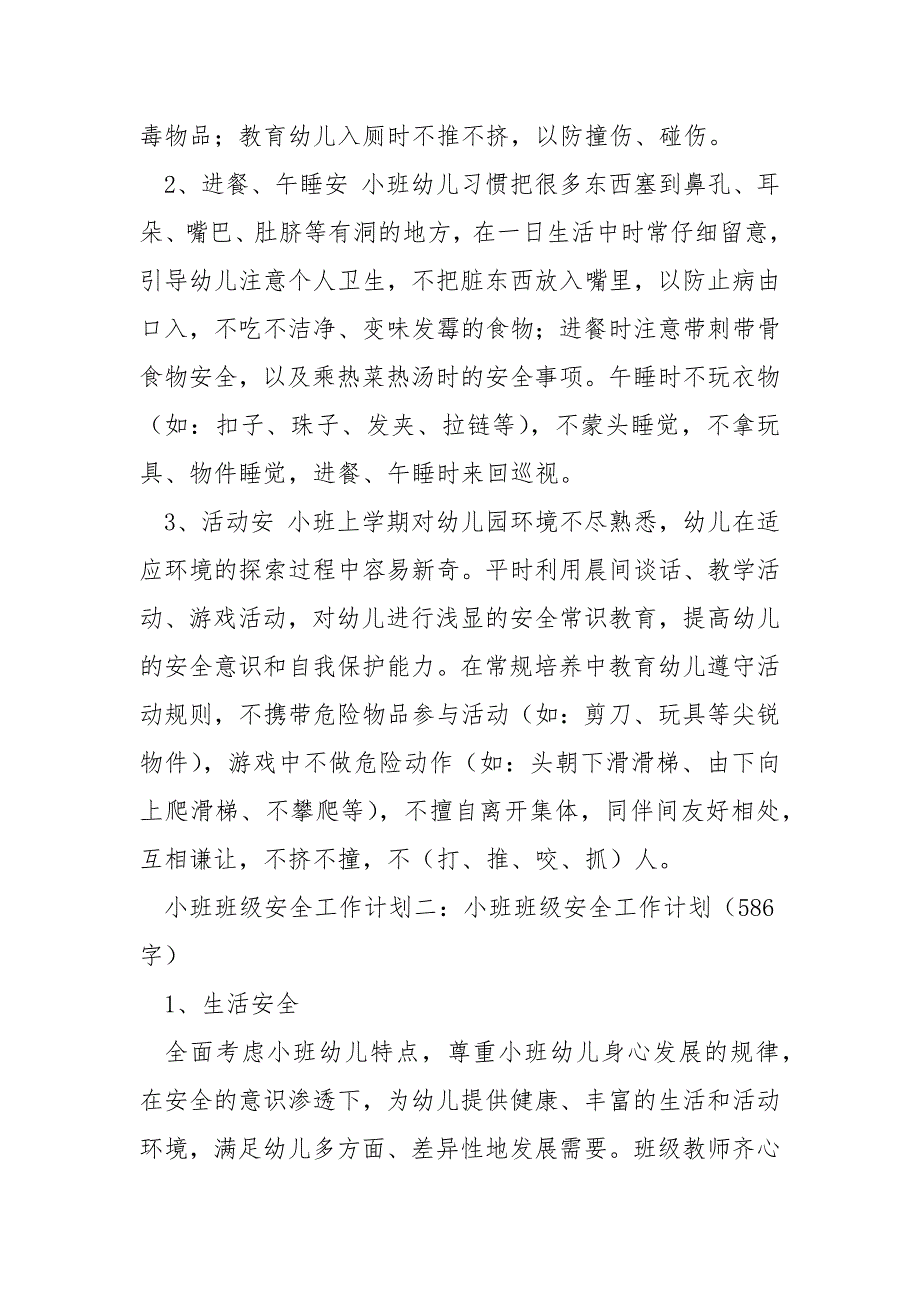 毒物品；教育幼儿入厕时不推不挤，以防撞伤、碰伤。
2、进餐、午睡安 小班幼儿习惯把很多东西塞到鼻孔、耳
朵、嘴巴、肚脐等有洞的地方，在一日生活中时常仔细留意，
引导幼儿注意个人卫生，不把脏东西放入嘴里，以防止病由
口入，不吃不洁净、变味发霉的食物；进餐时注意带刺带骨
食物安全，以及乘热菜热汤时的安全事项。午睡时不玩衣物
（如：扣子、珠子、发夹、拉链等），不蒙头睡觉，不拿玩
具、物件睡觉，进餐、午睡时来回巡视。
3、活动安 小班上学期对幼儿园环境不尽熟悉，幼儿在适
应环境的探索过程中容易新奇。平时利用晨间谈话、教学活
动、游戏活动，对幼儿进行浅显的安全常识教育，提高幼儿
的安全意识和自我保护能力。在常规培养中教育幼儿遵守活
动规则，不携带危险物品参与活动（如：剪刀、玩具等尖锐
物件），游戏中不做危险动作（如：头朝下滑滑梯、由下向
上爬滑梯、不攀爬等），不擅自离开集体，同伴间友好相处，
互相谦让，不挤不撞，不（打、推、咬、抓）人。
小班班级安全工作计划二：小班班级安全工作计划（586
字）
1、生活安全
全面考虑小班幼儿特点，尊重小班幼儿身心发展的规律，
在安全的意识渗透下，为幼儿提供健康、丰富的生活和活动
环境，满足幼儿多方面、差异性地发展需要。班级教师齐心